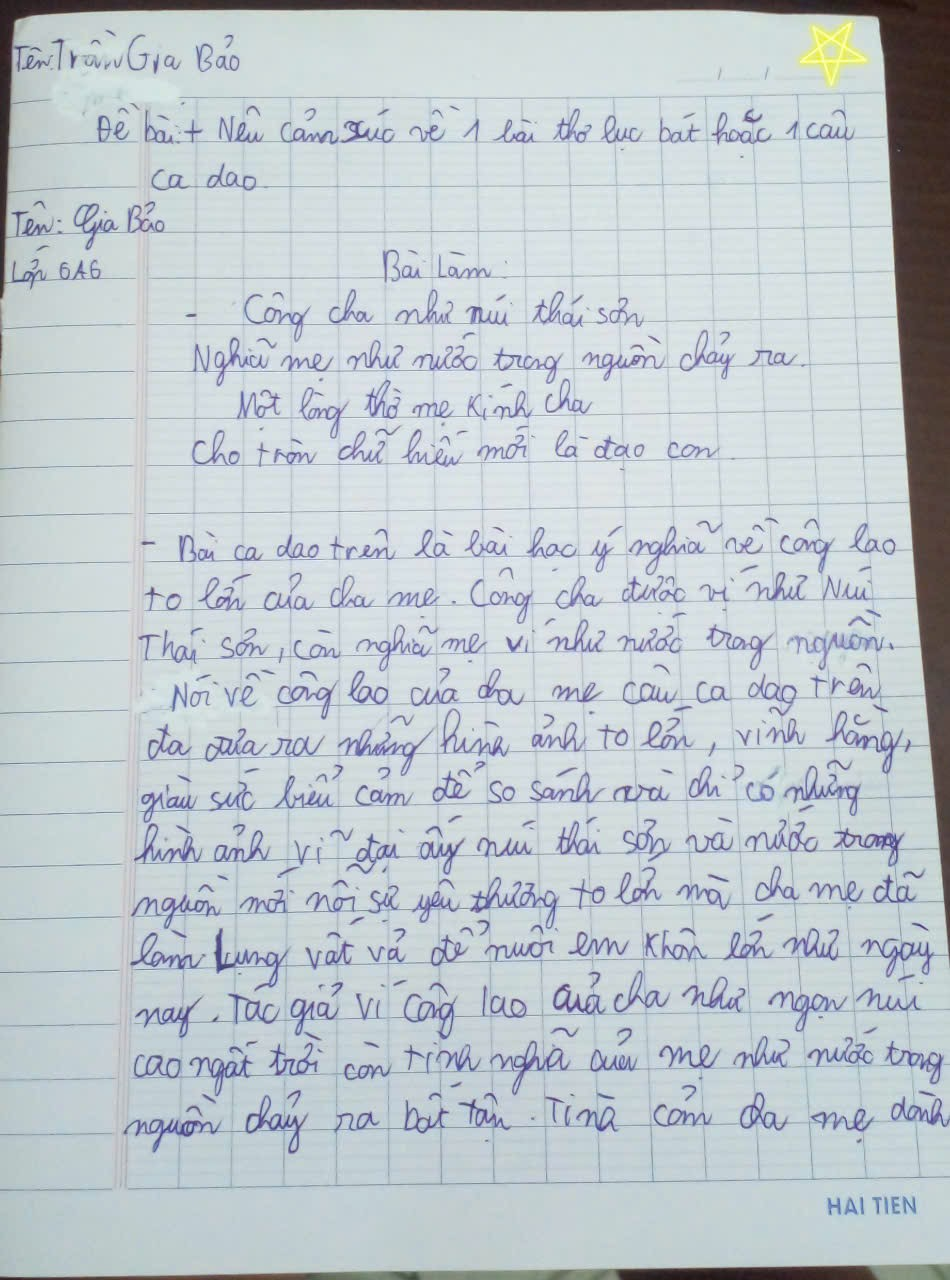 Tên: Trần Gia Bảo
Đề bài: + Nêu cảm xúc về 1 bài thơ lục bát hoặc 1 câu
ca dao.
Tên: Gia Bảo
Lớp 6A6
Bài Làm:
- Công cha như núi thái sơn
Nghĩa mẹ như nước trong nguồn chảy ra.
Một lòng thờ mẹ kính cha
Cho tròn chữ hiếu mới là đạo con.
- Bài ca dao trên là bài học ý nghĩa về công lao
to lớn của cha mẹ. Công cha được ví như Núi
Thái sơn, còn nghĩa mẹ ví như nước trong nguồn.
Nói về công lao của cha mẹ câu ca dao trên
đa đưa ra những hình ảnh to lớn, vĩnh hằng,
giàu sức biểu cảm để so sánh và chỉ có những
hình ảnh vĩ đại ấy núi thái sơn và nước trong
nguồn mới nói sự yêu thương to lớn mà cha mẹ đã
làm Lụng vất vả để nuôi em khôn lớn như ngày
nay. Tác giả ví công lao của cha như ngọn núi
cao ngất trời còn tình nghĩa của mẹ như nước trong
nguồn chảy ra bất tận. Tình cảm cha mẹ dành
HAI TIEN